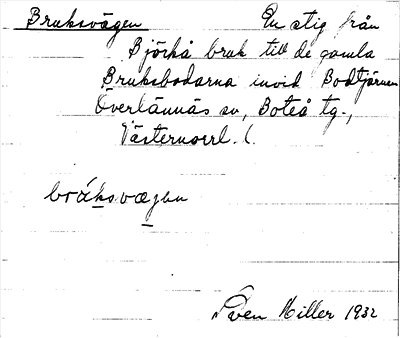 Bruksvägen En stig från
Björkå bruk till de gamla
Bruksbodarna invid Bodtjärnen
Överlännäs sn, Boteå tg.,
Västernorrl. l.
bråksvægen
Sven Hiller 1932